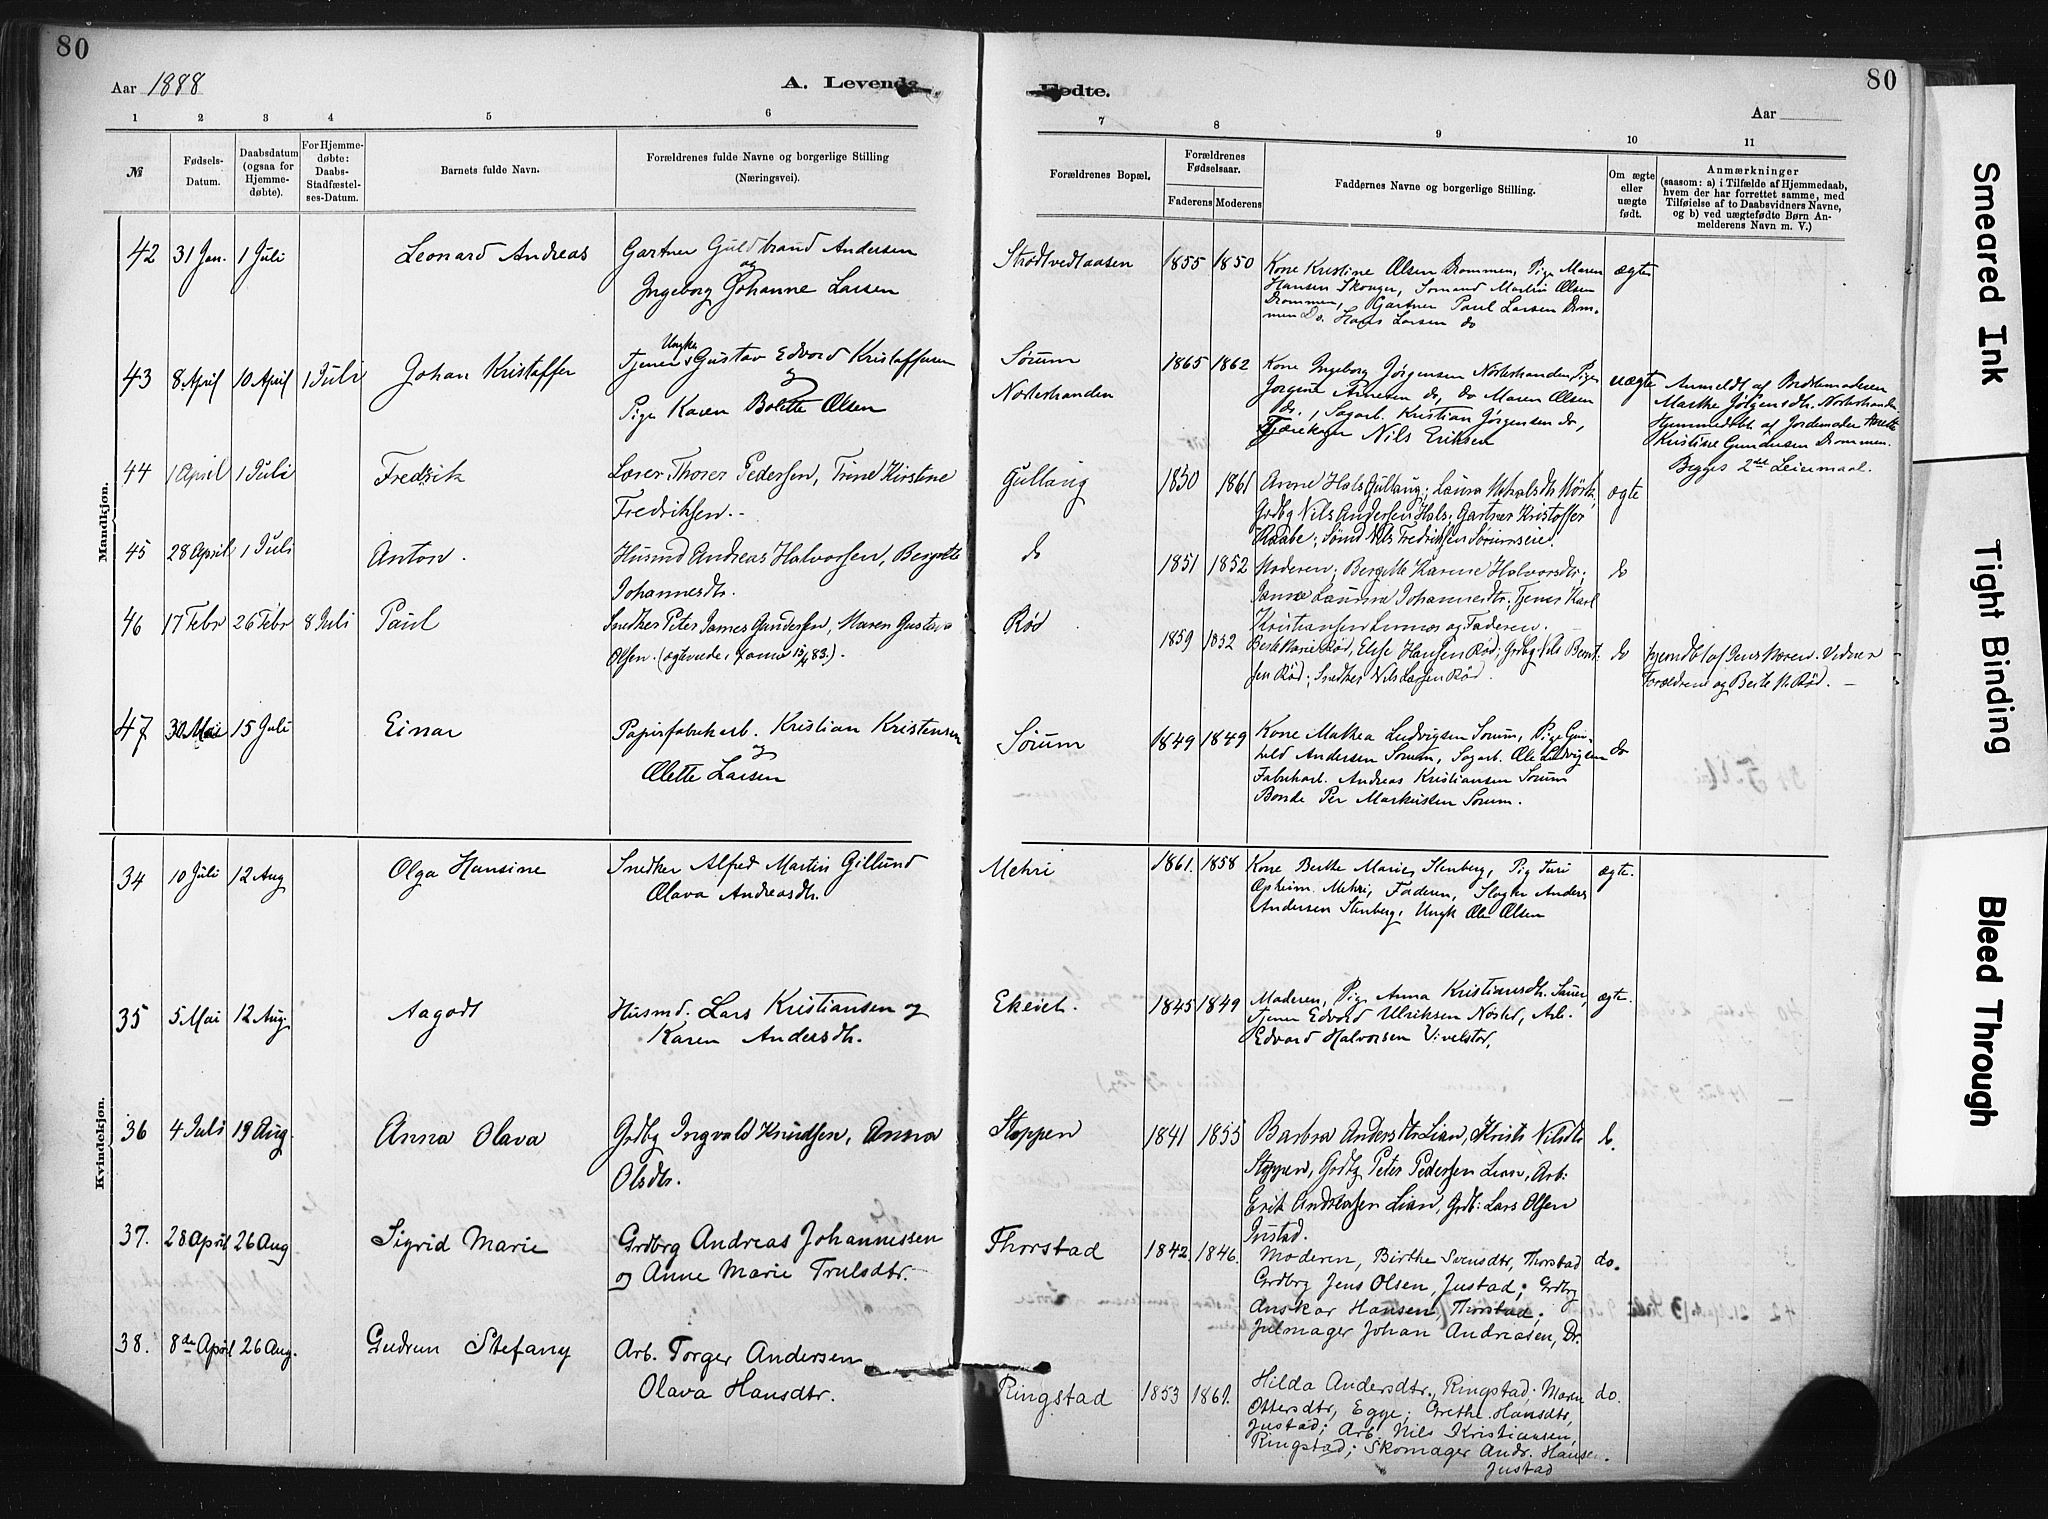 80
80
Aar 1888
A. Levende
Fødte.
Aar
1 2 3 4 5 6
7 8 9 10 11
№
Fødsels-
Datum.
Daabsdatum
(ogsaa for
Hjemme-
døbte).
For Hjemme-
døbte:
Daabs-
Stadfæstel-
ses-Datum.
Barnets fulde Navn.
Forældrenes fulde Navne og borgerlige Stilling
(Næringsvei).
Forældrenes Bopæl.
Forældrenes
Fødselsaar.
Faderens
Moderens
Faddernes Navne og borgerlige Stilling.
Om ægte
eller
uægte
født.
Anmærkninger
(saasom: a) i Tilfælde af Hjemmedaab,
hvem der har forrettet samme, med
Tilføielse af to Daabsvidners Navne,
og b) ved uægtefødte Børn An-
melderens Navn m. V.)
Mandkjøn.
42 31 Jan. 1 Juli Leonard Andreas Gartner Guldbrand Andersen
og
Ingeborg Johanne Larsen
Strødtvedtaasen 1855 1850 Kone Kristine Olsen Drammen, Pige Maren ægte
Hansen Skouger, Sømand Martin Olsen
Drammen, Gartner Paul Larsen Dram-
men Do. Hans Larsen do
43 8 April 10 April 1 Juli Johan Kristoffer Ungka
Tjener Gustav Edvard Kristoffersen
og
Pige Karen Bolette Olsen
Sørum 1865 1862
Nørterhanden
Kone Ingeborg Jørgensen Nørterhanden, Pige uægte
Jorgine Arnesen do, do Maren Olsen
do., Sagarb. Kristian Jørgensen do,
Nils Eriksen
Anmeldt af Bedstemoderen
Marthe
Hjemmedøbt af Jordemoder
Kristine Gundersen Drammen.
Begges 2det Leiermaal.
44 1 April 1 Juli Fredrik Lærer Thorer Pedersen, Trine Kirstine
Fredriksen.-
Gullaug 1850 1861 Anne Hals Gullaug; Laura ægte
Grdbg Nils Andersen Hals; Gartner Kristoffer
Raabe; Sømd Nils Fredriksen
45 28 April 1 Juli Anton. Husmd Andreas Halvorsen, Bergitte
Johannesdtr.
do 1851 1852 Moderen; Bergitte Karine Halvorsdtr; do
Laurine Johannesdtr; Tjener Karl
Kristiansen Linnes og Faderen.
46 17 Febr 26 Febr 8 Juli Paul Snedker Peter James Gundersen, Maren Gustava
Olsen. (ægteviede 83.).
Rød 1859 1852 Berte Marie Rød, Else Hansen Rød; Grdbg Nils Bernt- do
sen Rød; Snedker Nils Larsen Rød.
hjemdbt af Jens Noren. Vidner
Forældrene og Berte M. Rød. -
47 30 Mai 15 Juli Einar Papirfabrikarb. Kristian Kristensen
og
Olette Larsen
Sørum 1849 1849 Kone Mathea Ludvigsen Sørum, Pige Gun- do
hild Andersen Sørum, Sagarb. Ole Ludvigsen
Fabrikarb. Andreas Kristiansen Sørum
Bonde Per Markussen Sørum.
Kvindekjøn.
34 10 Juli 12 Aug Olga Hansine Snedker Alfred Martin Gillund
Olava Andreasdtr.
Mehri 1861. 1858 Kone Berthe Marie Stenberg, Pig Turi ægte.
Opheim. Mehri, Faderen, Anders
Andersen Stenberg, Ungk Ole Olsen
35 5 Mai 12 Aug. Aagodt Husmd. Lars Kristiansen og
Karen Andersdtr.
Ekeiet. 1845 1849 Moderen, Pige Anna Kristiansdtr. ægte.
Tjener Edvard Ulriksen Nøsted, Arb.
Edvard Halvorsen Vivelstad,
36 4 Juli 19 Aug. Anna Olava Grdbg Ingvald Knudsen, Anna
Olsdtr.
Stoppen 1841 1855 Barbra Andersdtr Lian, Kristi Nilsdtr do.
Stoppen, Grdbg Peter Pedersen Lian, Arb:
Erik Andreasen Lian, Grdb: Lars Olsen
Justad.
37. 28 April 26 Aug Sigrid Marie Grdbrg Andreas Johannessen
og Anne Marie Trulsdtr.
Thorstad 1842. 1846. Moderen, Birthe Svensdtr, Thorstad do.
Grdbrg Jens Olsen, Justad; Grdbg
Anskar Hansen, Thorstad;
Julmager Johan Andreasen, Dr.
38. 8de April 26 Aug. Gudrun Stefany Arb. Torger Andersen
Olava Hansdtr.
Ringstad 1853 1861. Hilda Andersdtr., Ringstad; Maren do.
Ottersdtr, Egge; Grethe Hansdtr,
Justad; Arb. Nils Kristiansen,
Ringstad; Skomager Andr. Hansen.
Justad
Smeared Ink
Tight Binding
Bleed Through